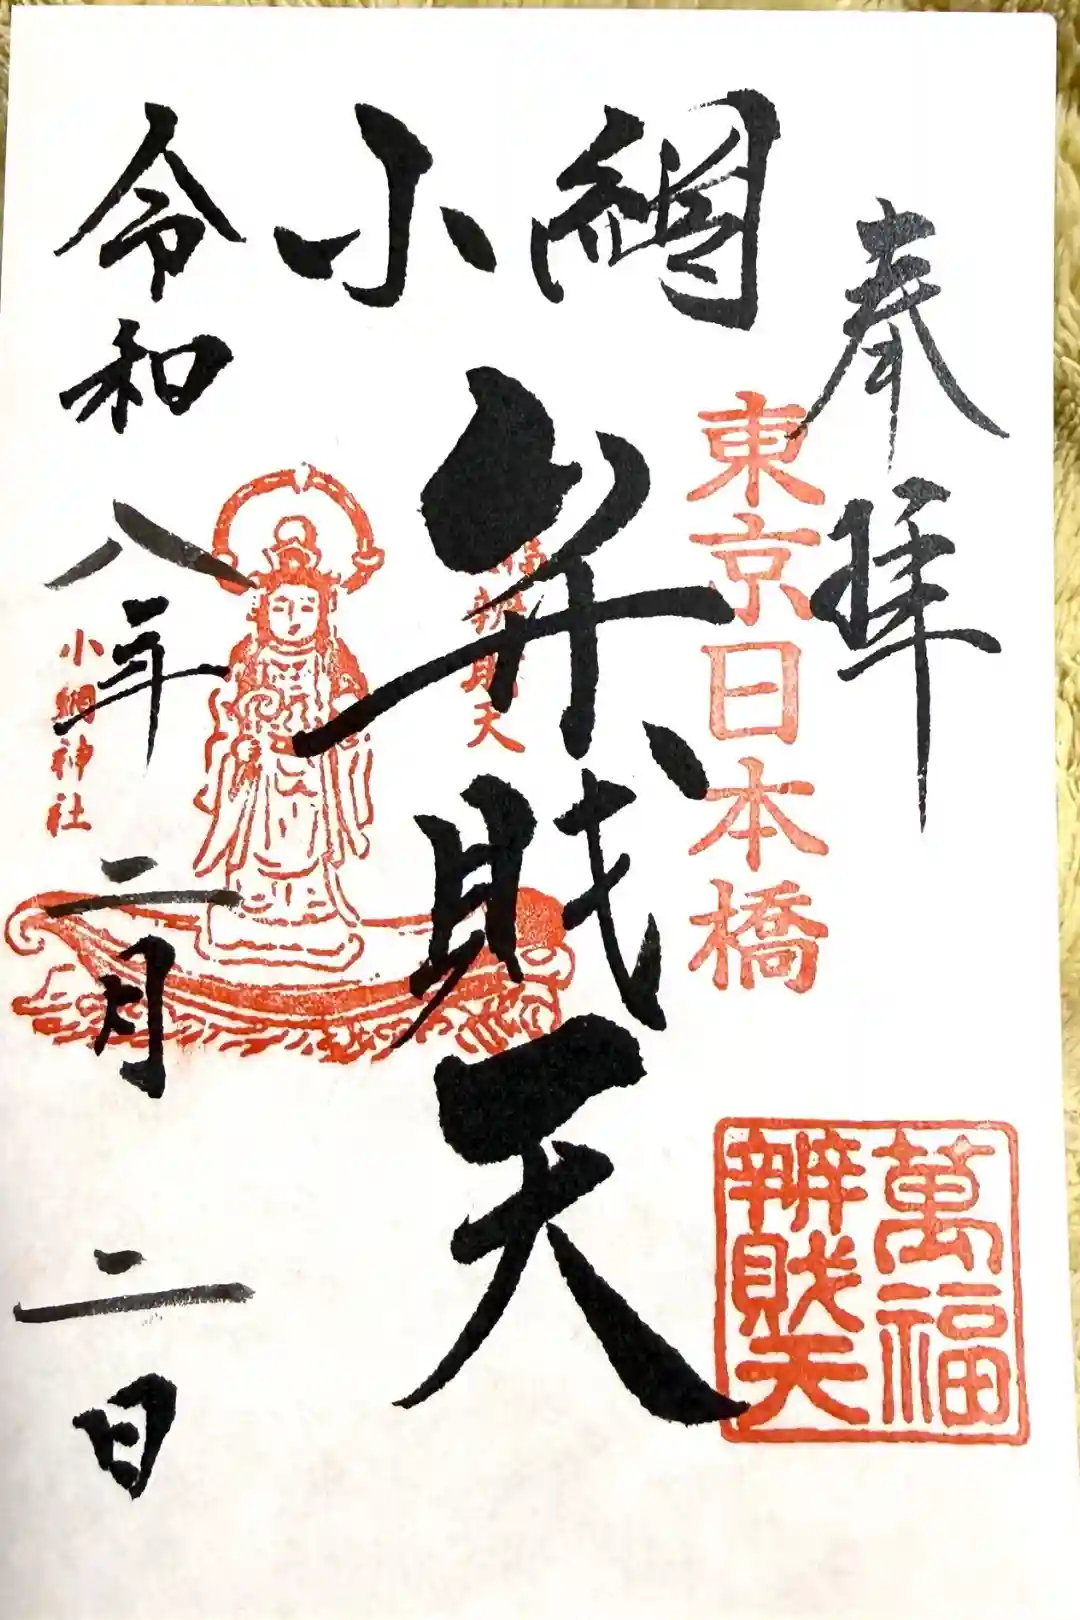 奉拝
東京日本橋
萬福
辨財天
小網
弁財天
福辨財天
小網神社
令和八年二月二日